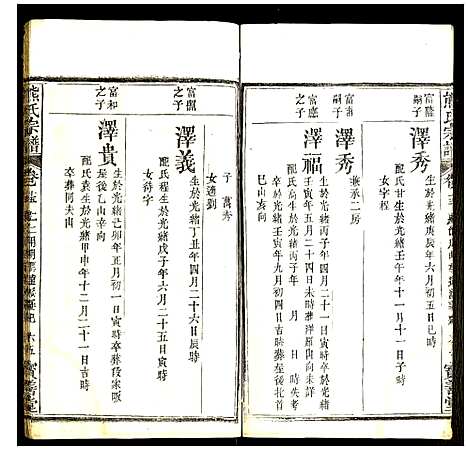 熊氏宗譜
富隆嗣子
澤秀
生於光緒庚辰年六月初五日巳時
配氏甘生於光緒壬午年十一月初一日子時
女字程
富南嗣子
澤秀
兼承二房
富應之子
澤福
生於光緒丙子年四月二十一日寅時卒於光緒
壬寅年五月二十四日未時葬洋原向未詳
配氏高生於光緒 年 月 日 時卒
於光緒壬寅年九月初四日吉時葬屋後北首
巳山亥向
熊氏宗譜
子 萬秀
女適劉
富潤之子
澤義
生於光緒丁丑年四月二十六日辰時
配氏程生於光緒戊子年六月二十五日寅時
女符字
富和之子
澤貴
生於光緒己卯年正月初一日寅時卒葬段家畈
屋後乙山辛向
配氏袁生於光緒甲申年十二月二十一日吉時
卒葬同夫南
寶善堂